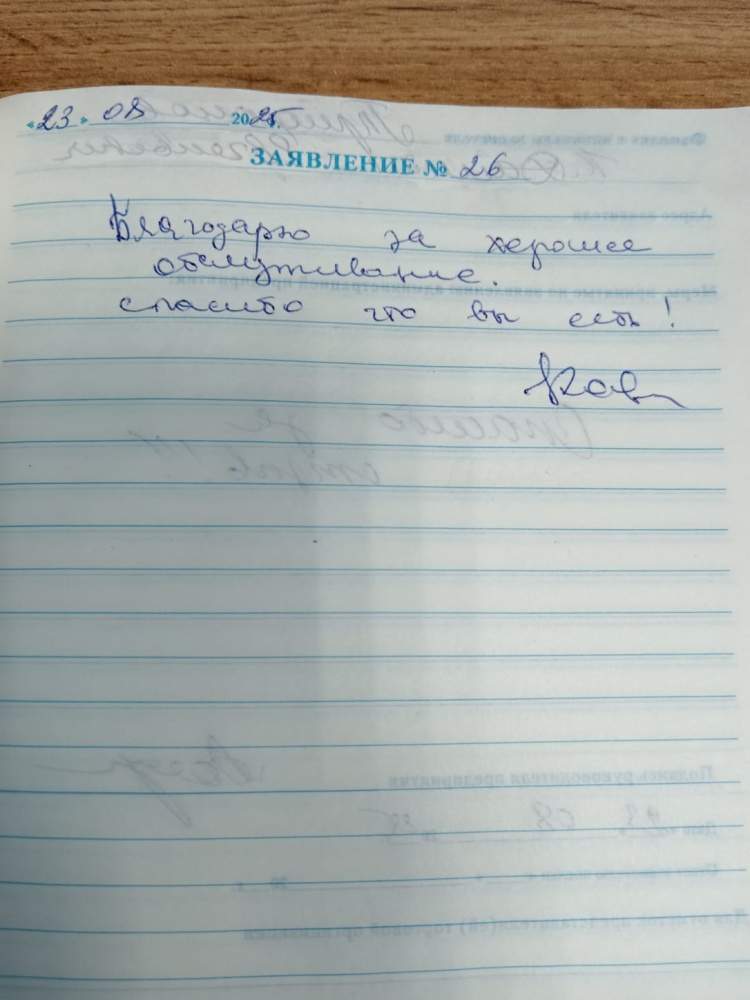 «23» 08 2025г.
ЗАЯВЛЕНИЕ № 26
Благодарю за хорошее
обслуживание.
спасибо что вы есть!